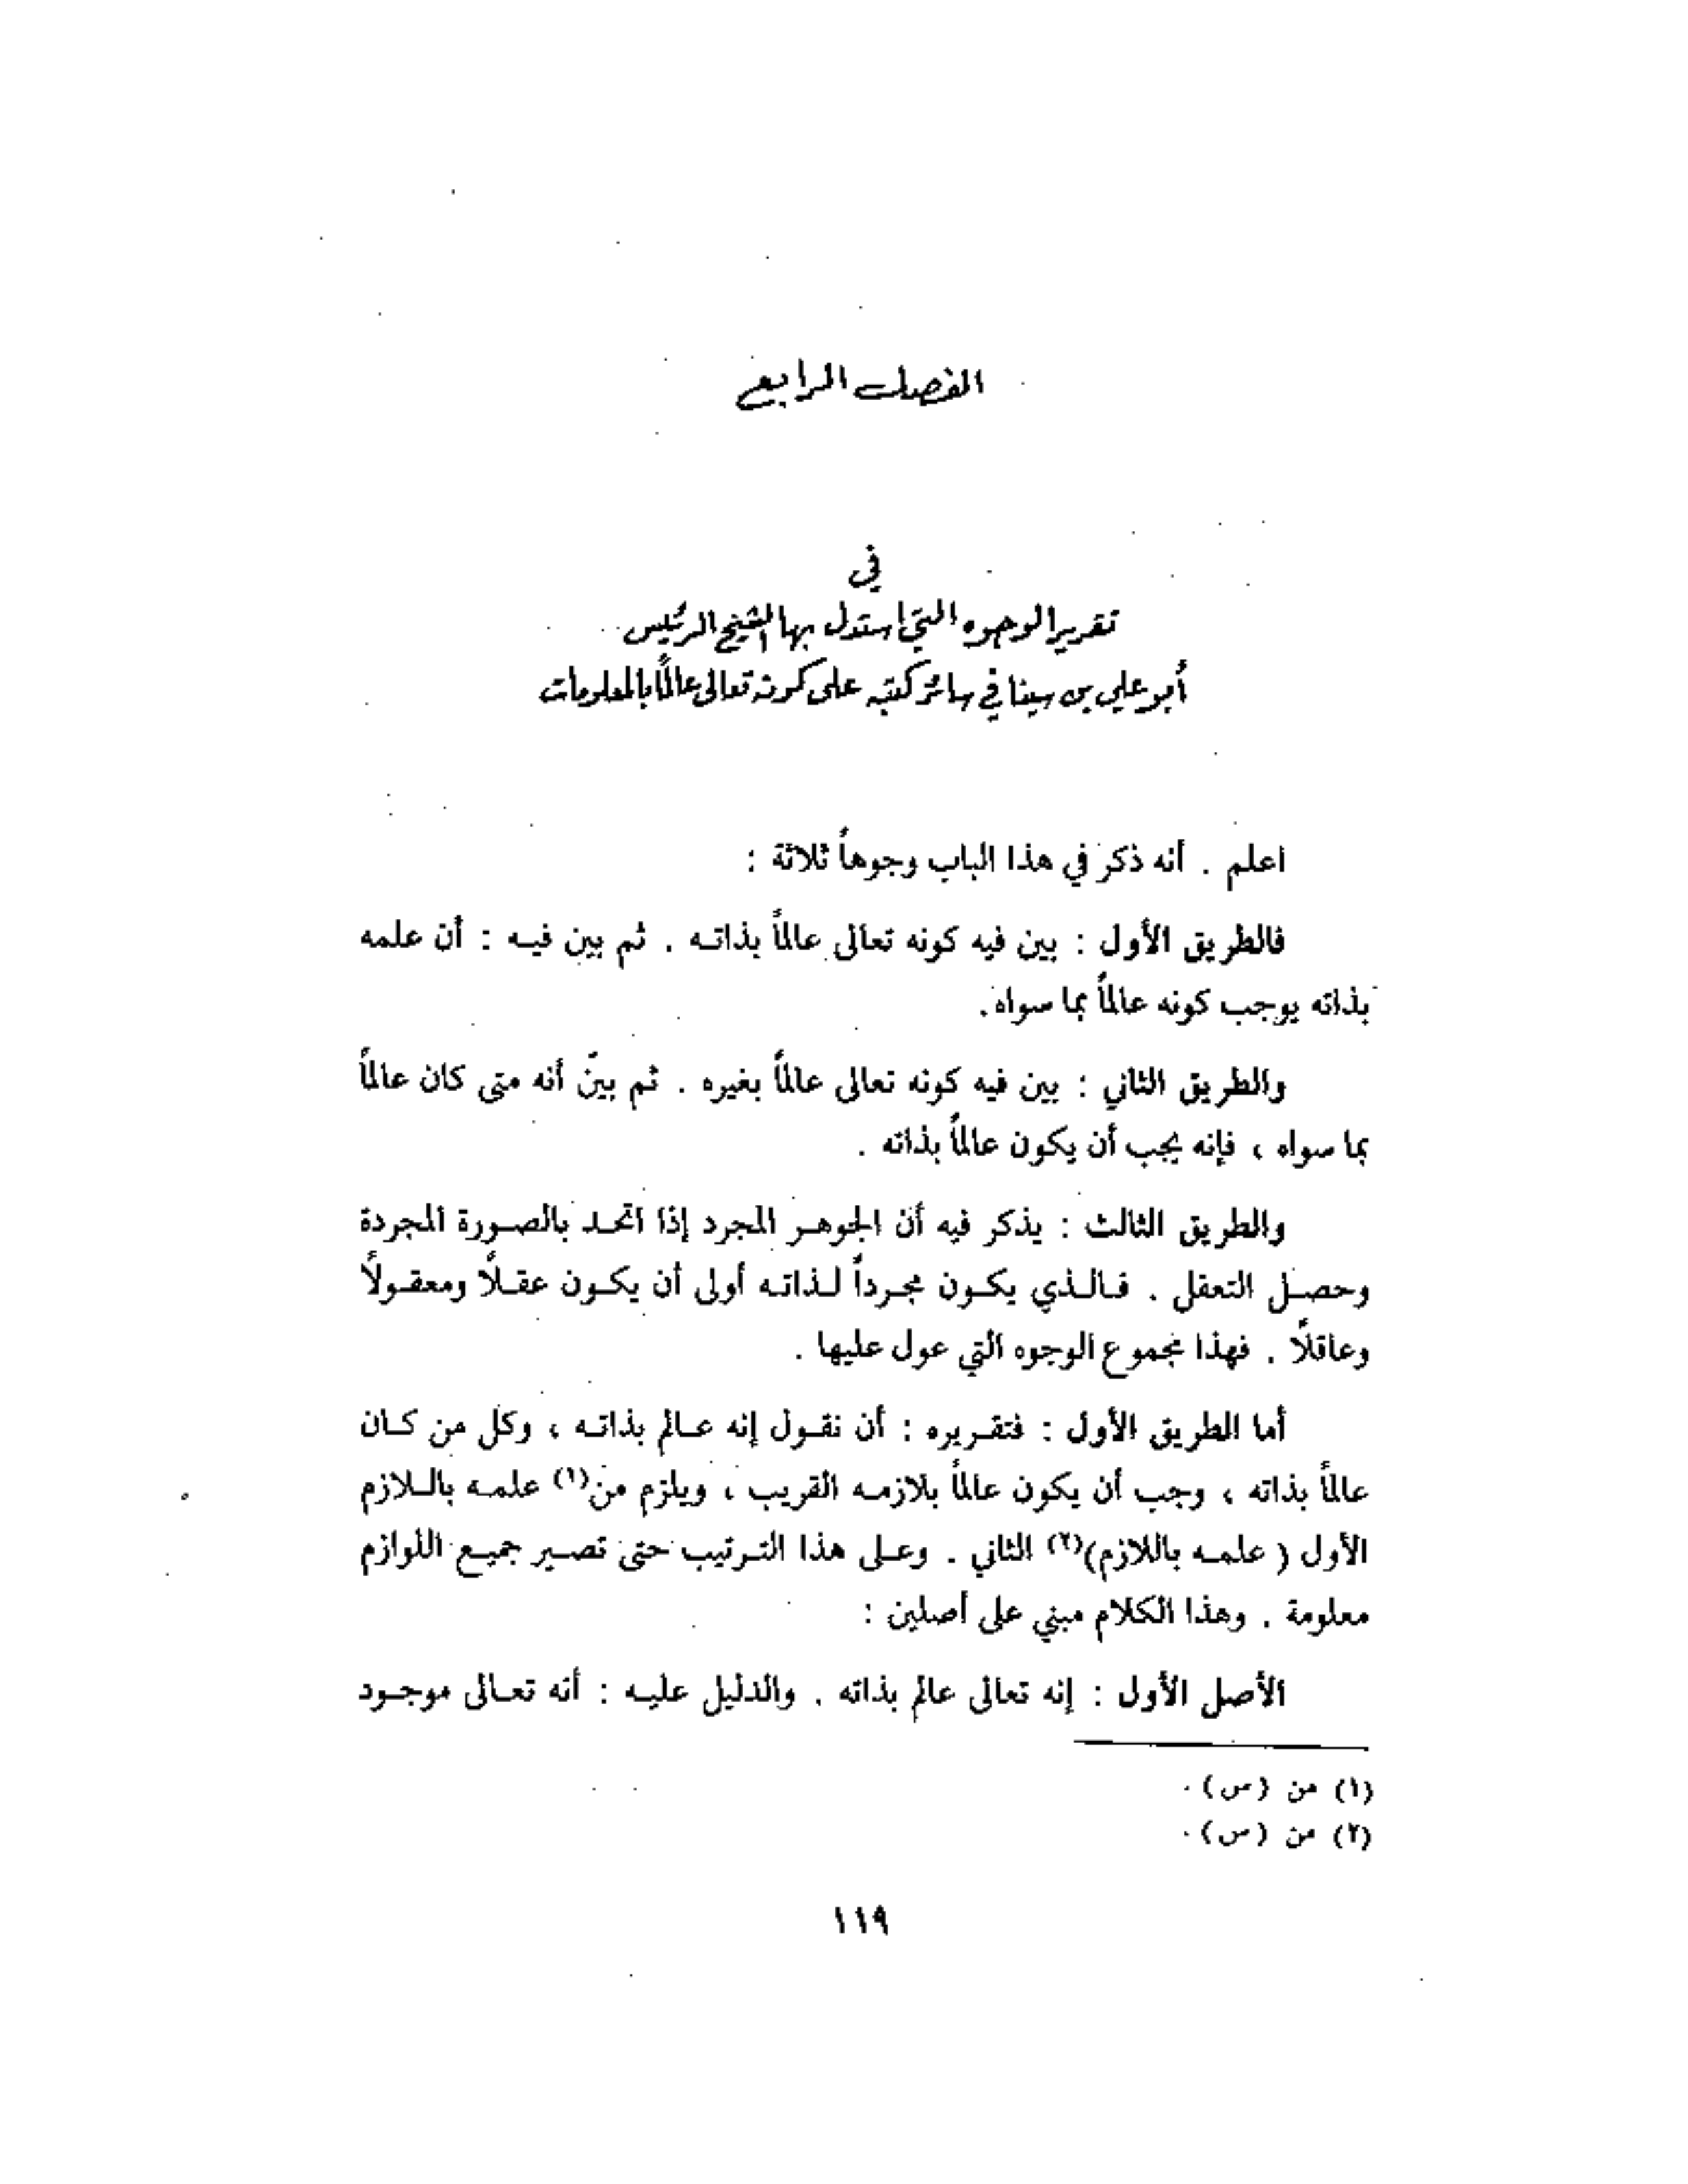 الفصل الرابع
في
تقرير الوجوه التي استدل بها الشيخ الرئيس
أبو علي بن سينا في سائر كتبه على كونه تعالى عالمًا بالمعلومات
اعلم . أنه ذكر في هذا الباب وجوهاً ثلاثة :
فالطريق الأول : بين فيه كونه تعالى عالماً بذاته . ثم بين فيه : أن علمه
بذاته يوجب كونه عالماً بما سواه .
والطريق الثاني : بين فيه كونه تعالى عالماً بغيره . ثم بينّ أنه متى كان عالماً
بما سواه ، فإنه يجب أن يكون عالماً بذاته .
والطريق الثالث : يذكر فيه أن الجوهر المجرد إذا اتحد بالصورة المجردة
وحصل التعقل . فالذي يكون مجرداً لذاته أولى أن يكون عقلاً ومعقولاً
وعاقلاً . فهذا مجموع الوجوه التي عول عليها .
أما الطريق الأول : فتقريره : أن نقول إنه عالم بذاته ، وكل من كان
عالماً بذاته ، وجب أن يكون عالماً بلازمه القريب ، ويلزم من(١) علمه باللازم
الأول ( علمه باللازم)(٢) الثاني . وعلى هذا الترتيب حتى تصير جميع اللوازم
معلومة . وهذا الكلام مبني على أصلين :
الأصل الأول : إنه تعالى عالم بذاته . والدليل عليه : أنه تعالى موجود
(١) من (س) .
(٢) من (س) .
١١٩